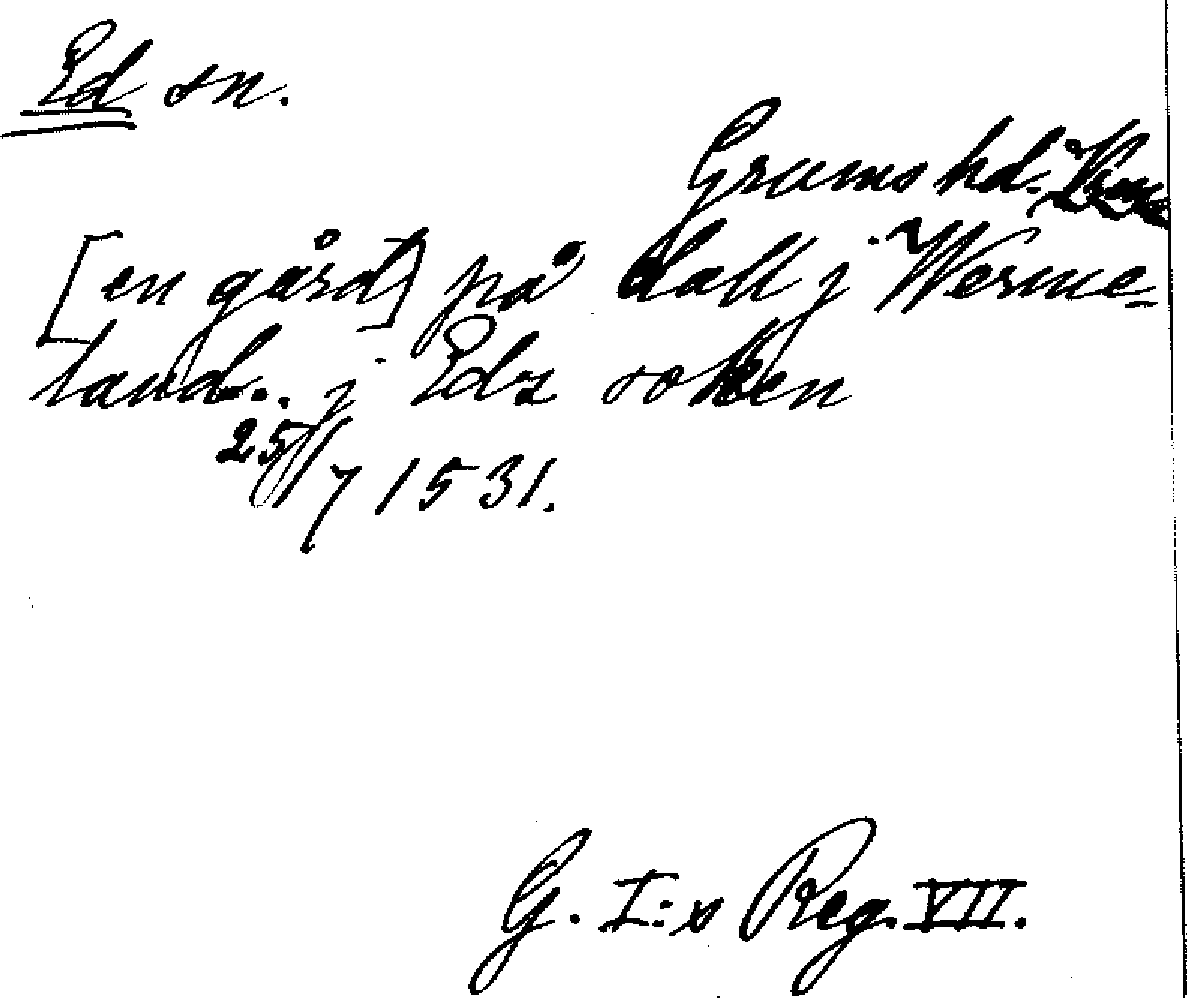 Ed sn.
Grums hd.
[en gård] på dall j Werme-
land.. j Edz soken
25/7 1531.
G. I:s Reg. VII.